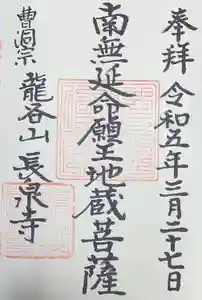 奉拝 令和五年三月二十七日
南無延命願王地蔵菩薩
曹洞宗 龍谷山 長泉寺